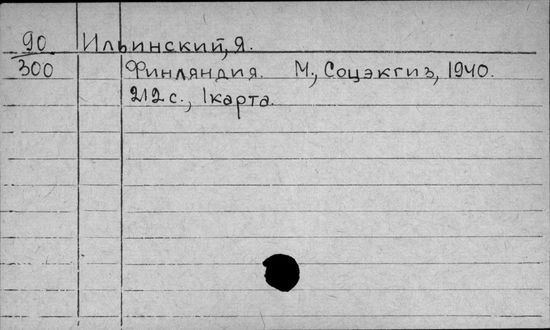 90 Ильинский, Я.
300 Финляндия. М., Соцэкгиз, 1940.
212 с., 1 карта.